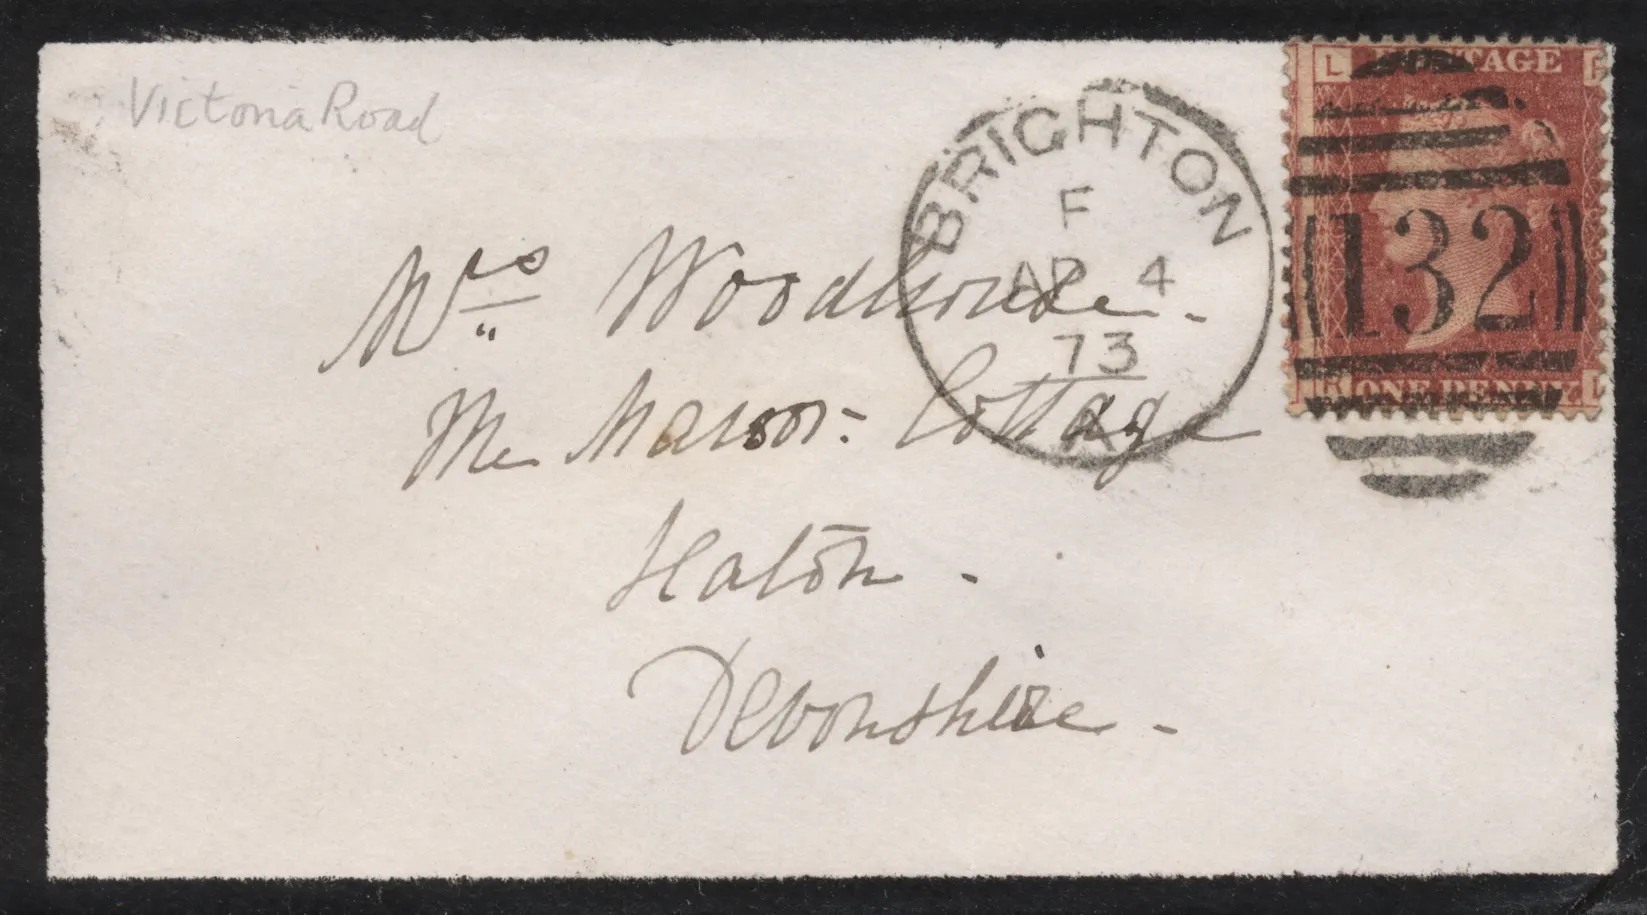 Victoria Road
BRIGHTON
F
AP 4
73
A
L POSTAGE
132
ONE PENNY L
Mrs Woodhouse -
The Manor Cottage
Seaton -
Devonshire -